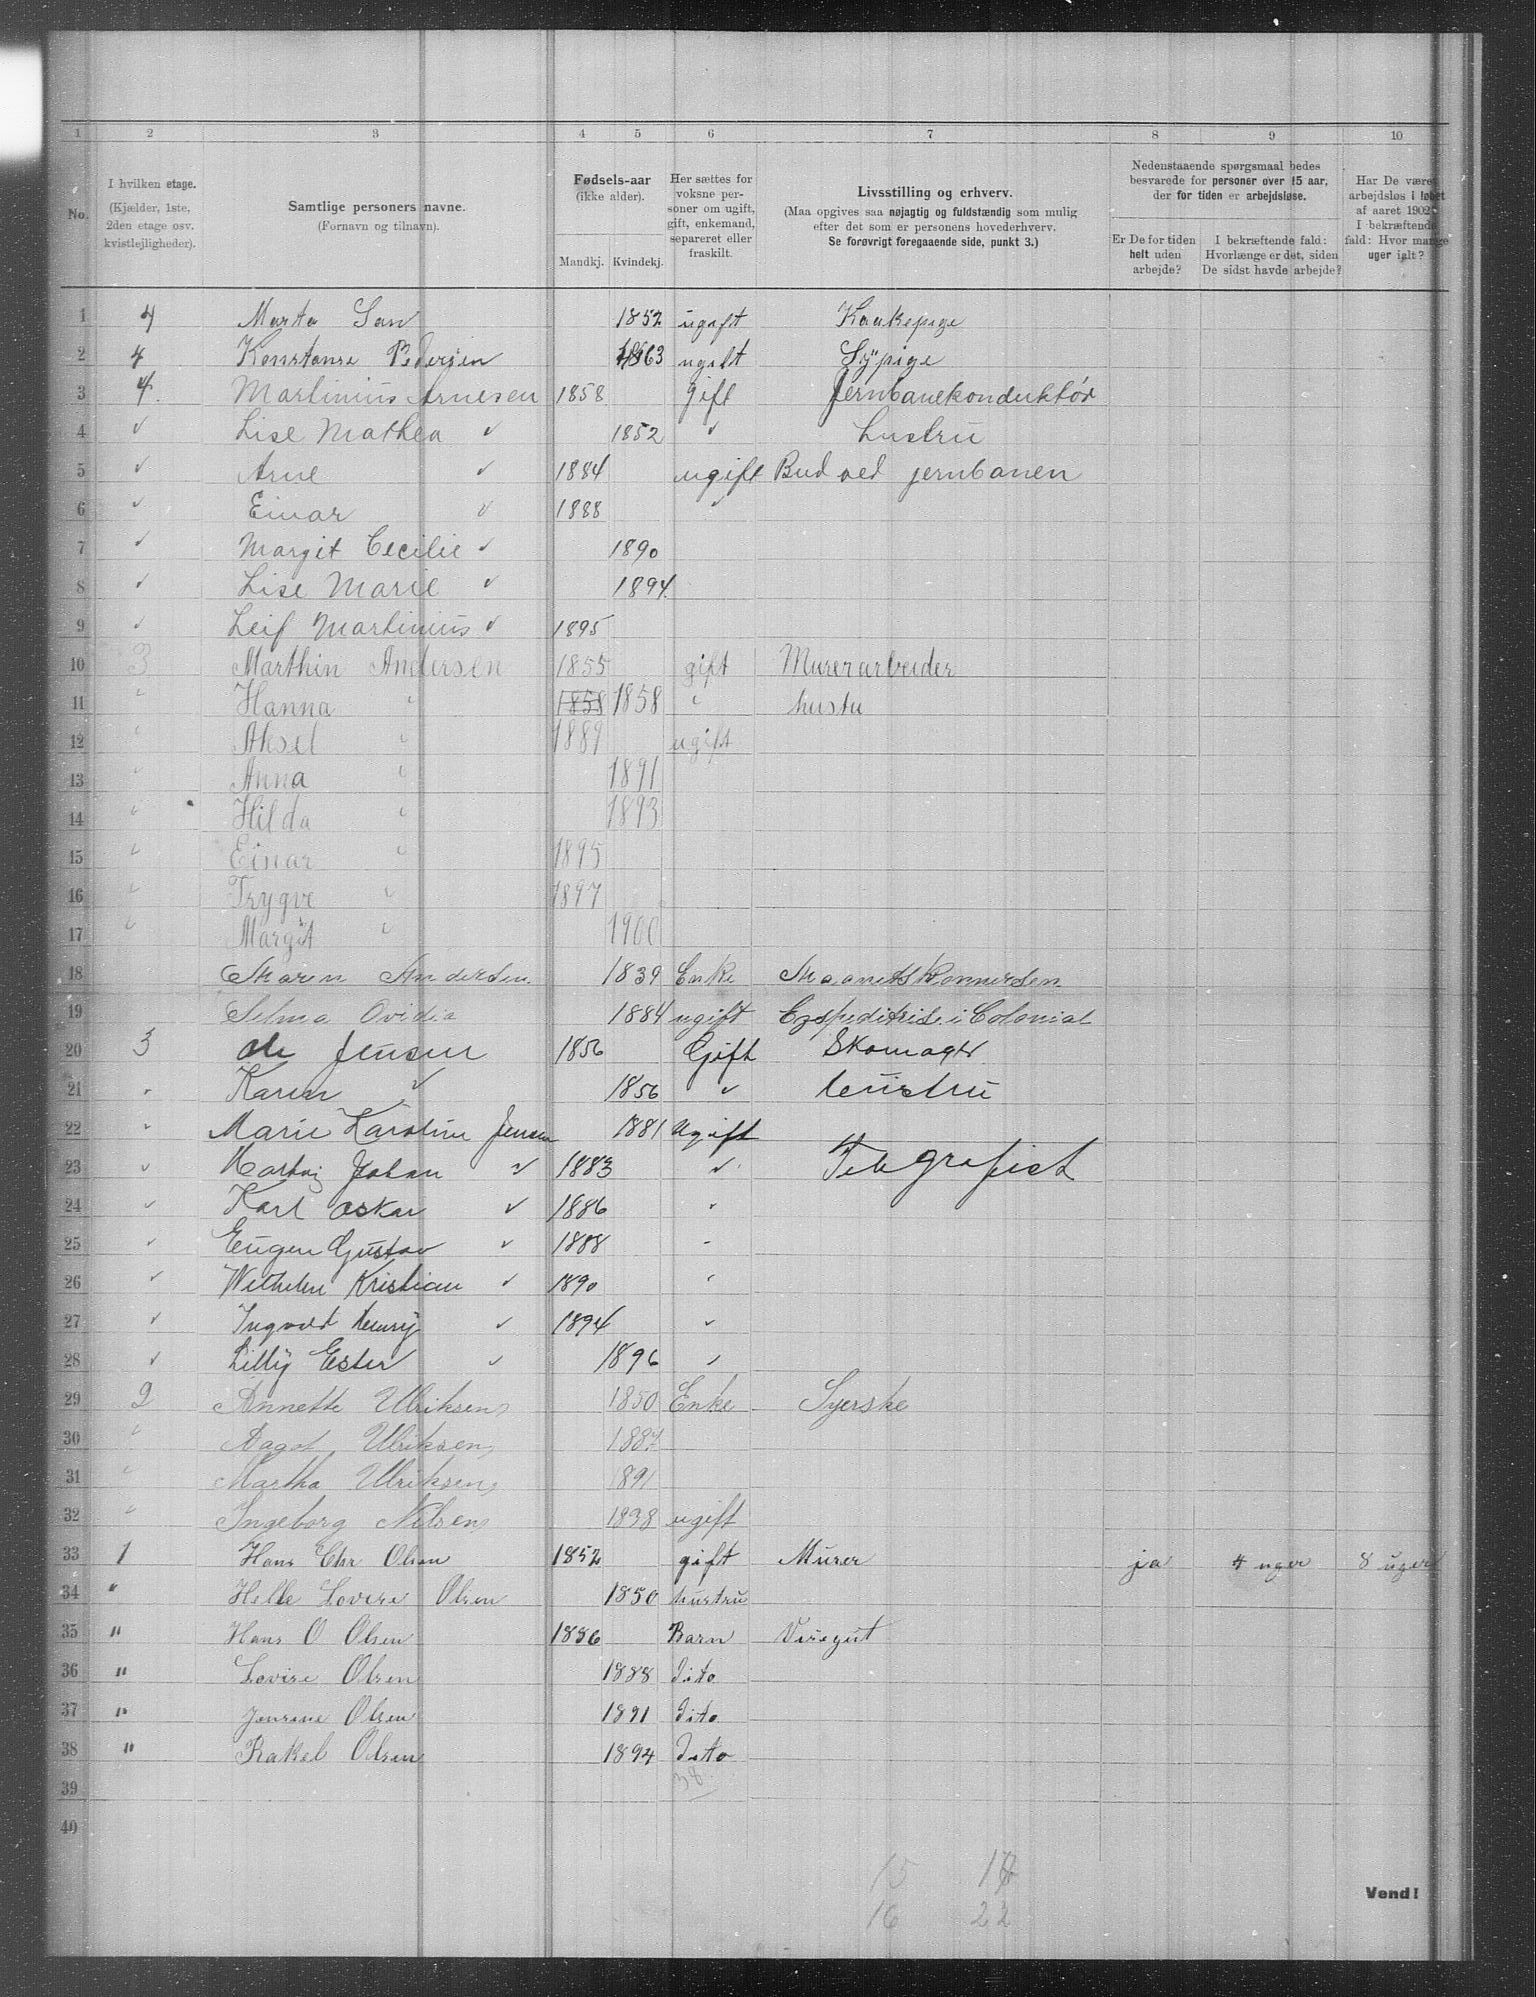 1 2 3 4 5 6 7 8 9 10
No.
I hvilken etage.
(Kjælder, 1ste,
2den etage osv.
kvistlejligheder).
Samtlige personers navne.
(Fornavn og tilnavn).
Fødsels-aar
(ikke alder).
Mandkj. Kvindekj.
Her sættes for
voksne per-
soner om ugift,
gift, enkemand,
separeret eller
fraskilt.
Livsstilling og erhverv.
(Maa opgives saa nøjagtig og fuldstændig som mulig
efter det som er personens hovederhverv.
Se forøvrigt foregaaende side, punkt 3.)
Nedenstaaende spørgsmaal bedes
besvarede for personer over 15 aar,
der for tiden er arbejdsløse.
Er De for tiden
helt uden
arbejde?
I bekræftende fald:
Hvorlænge er det, siden
De sidst havde arbejde?
Har De været
arbejdsløs i løbet
af aaret 1902?
I bekræftende
fald: Hvor mange
uger ialt?
1 4 Marta 1852 ugift Kaakepige
2 4 Konstanse Pedersen 1863 ugift Sypige
3 4. Martinius Arnesen 1858 gift Jernbanekonduktør
4 " Lise Mathea " 1852 " hustru
5 " Arne " 1884 ugift Bud ved jernbanen
6 " Einar " 1888 "
7 " Margit Cecilie " 1890
8 " Lise Marie " 1894.
9 " Leif Martinius " 1895
10 3 Marthin Andersen 1855 gift Murerarbeider
11 " Hanna " 1858 1858 " hustu
12 " Aksel " 1889 ugift
13 " Anna " 1891
14 " Hilda " 1893
15 " Einar " 1895
16 " Trygve " 1897
17 " Margit " 1900
18 Maren Andersen 1839 Enke
19 Selma Ovidia 1884 ugift Expeditrise i Colonial
20 3 Ole Jensen 1856 Gift Skomager
21 " Karen " 1856 " hustru
22 " Marie Karoline Jensen 1881 Ugift
23 " Johan " 1883 " Telegrafist
24 " Karl Oskar " 1886 "
25 " Eugen Gustav " 1888 "
26 " Wilhelm Kristian " 1890 "
27 " Ingvald Henry " 1894 "
28 " Lilly Ester " 1896 "
29 2 Annette Ulriksen, 1850 Enke Syerske
30 " Aagot Ulriksen, 1887.
31 " Martha Ulriksen, 1891
32 " Ingeborg Nilsen, 1838 ugift
33 1 Hans Chr Olsen 1852 gift Murer ja 4 uger 8 uger
34 " Helle Lovise Olsen 1850 hustru
35 " Hans O Olsen 1886 Barn Visegut
36 " Lovise Olsen 1888 dito
37 " Jensine Olsen 1891 dito
38 " Rakel Olsen 1894 dito
39 38.
40
15
16 22
Vend!